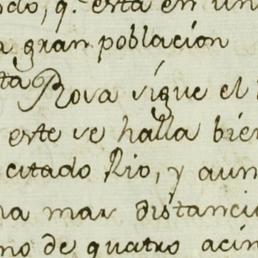 do, q.e está en un
gran poblacion
ta Rosa sigue el
este se halla bien
citado Rio, y aun
na mas distanci
no de quatro acin